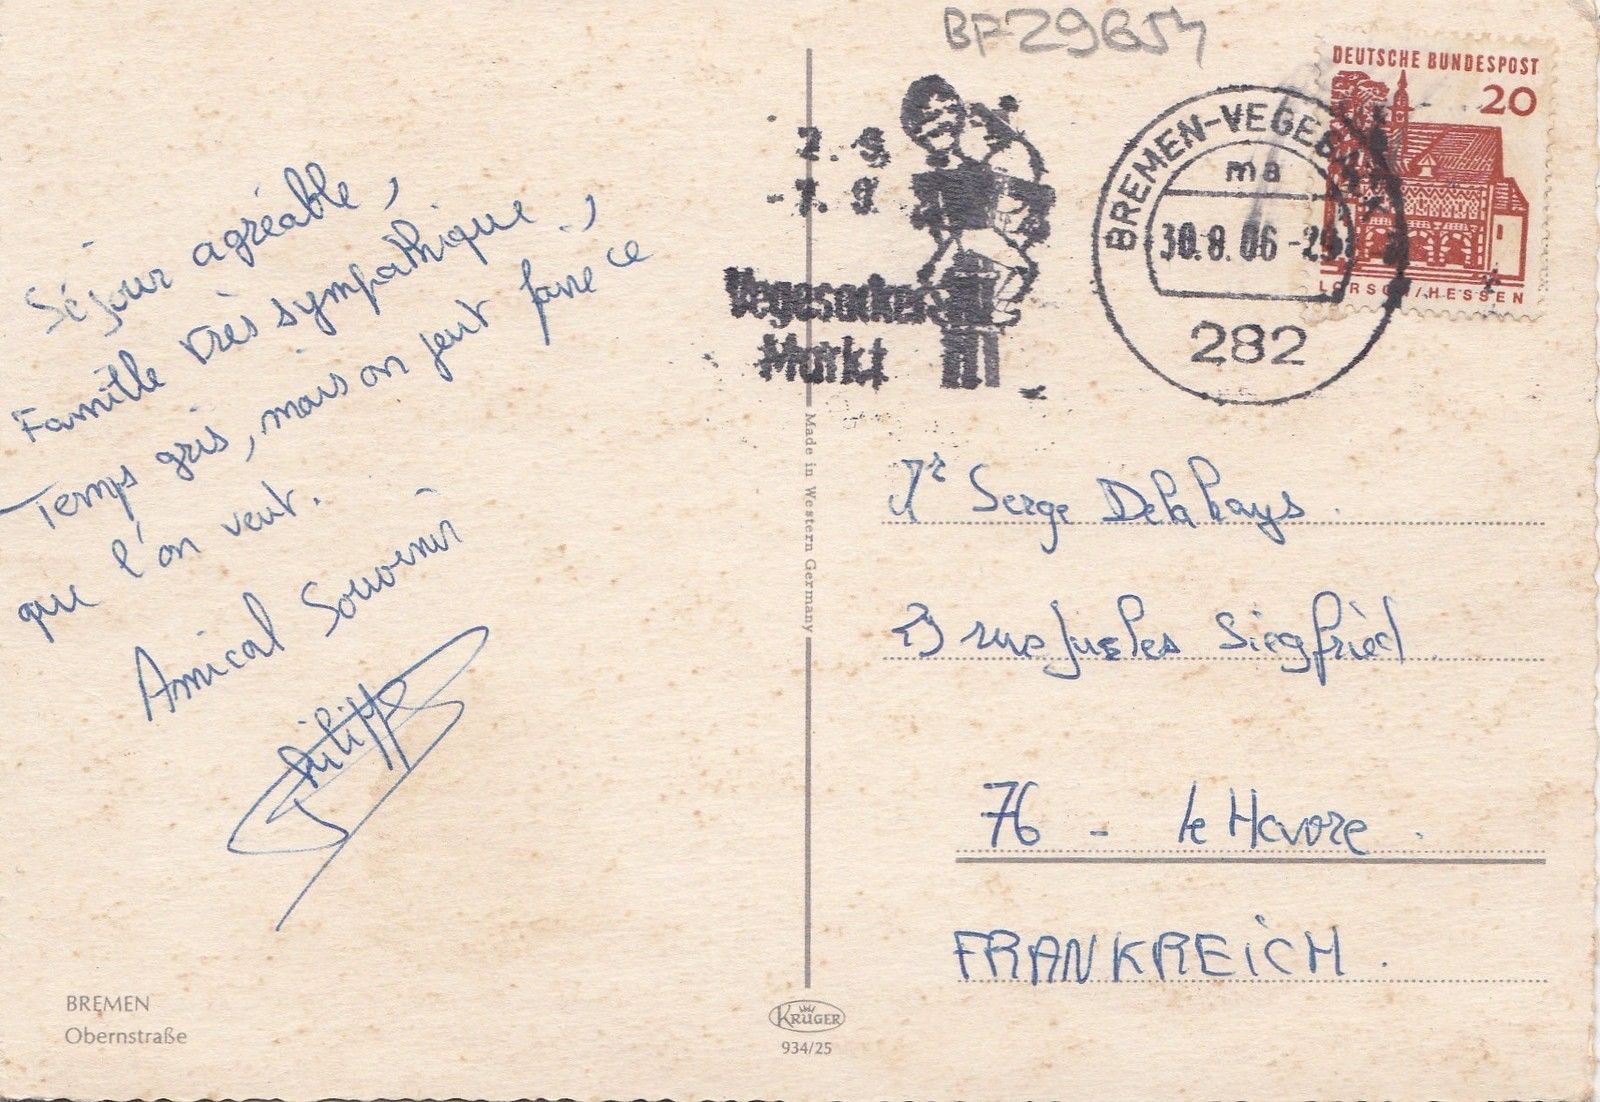 BF29654
DEUTSCHE BUNDESPOST
20
LORSCH/HESSEN
BREMEN-VEGESACK
ma
30.8.06-20
282
2. 9
-7. 9
Vegesacker
Markt
Séjour agréable,
Famille très sympathique,
Temps gris, mais on peut faire ce
que l'on veut.
Amical Souvenir
Philippe
Made in Western Germany
Mr Serge Delahays.
23 rue Jules Siegfried.
76 - le Havre.
FRANKREICH.
BREMEN
Obernstraße
KRÜGER
934/25